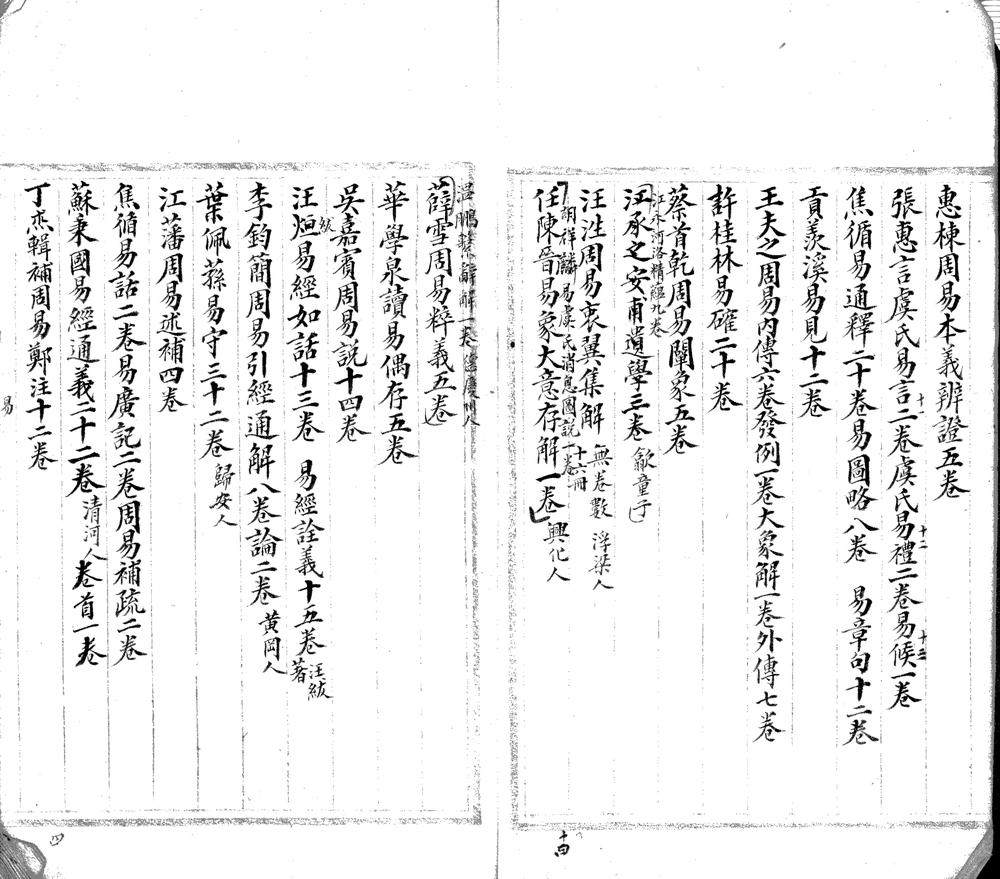 惠棟周易本義辨證五卷
張惠言虞氏易言二卷虞氏易禮二卷易候一卷
十
十二
十三
焦循易通釋二十卷易圖略八卷 易章句十二卷
貢羨溪易見十二卷
王夫之周易內傳六卷發例一卷大象解一卷外傳七卷
許桂林易確二十卷
蔡首乾周易闡象五卷
江永河洛精蘊九卷
汪承之安甫遺學三卷 歙童子
汪泩周易衷翼集解 無卷數 浮梁人
十六冊
胡祥麟易虞氏消息圖說一卷
任陳晉易象大意存解一卷 興化人
卷
薛雪周易粹義五卷
華學泉讀易偶存五卷
吳嘉賓周易說十四卷
紱
汪烜易經如話十三卷 易經詮義十五卷 汪紱著
李鈞簡周易引經通解八卷論二卷 黃岡人
葉佩蓀易守三十二卷 歸安人
江藩周易述補四卷
焦循易話二卷易廣記二卷周易補疏二卷
蘇秉國易經通義二十二卷 清河人 卷首一卷
丁杰輯補周易鄭注十二卷
易
十四
四